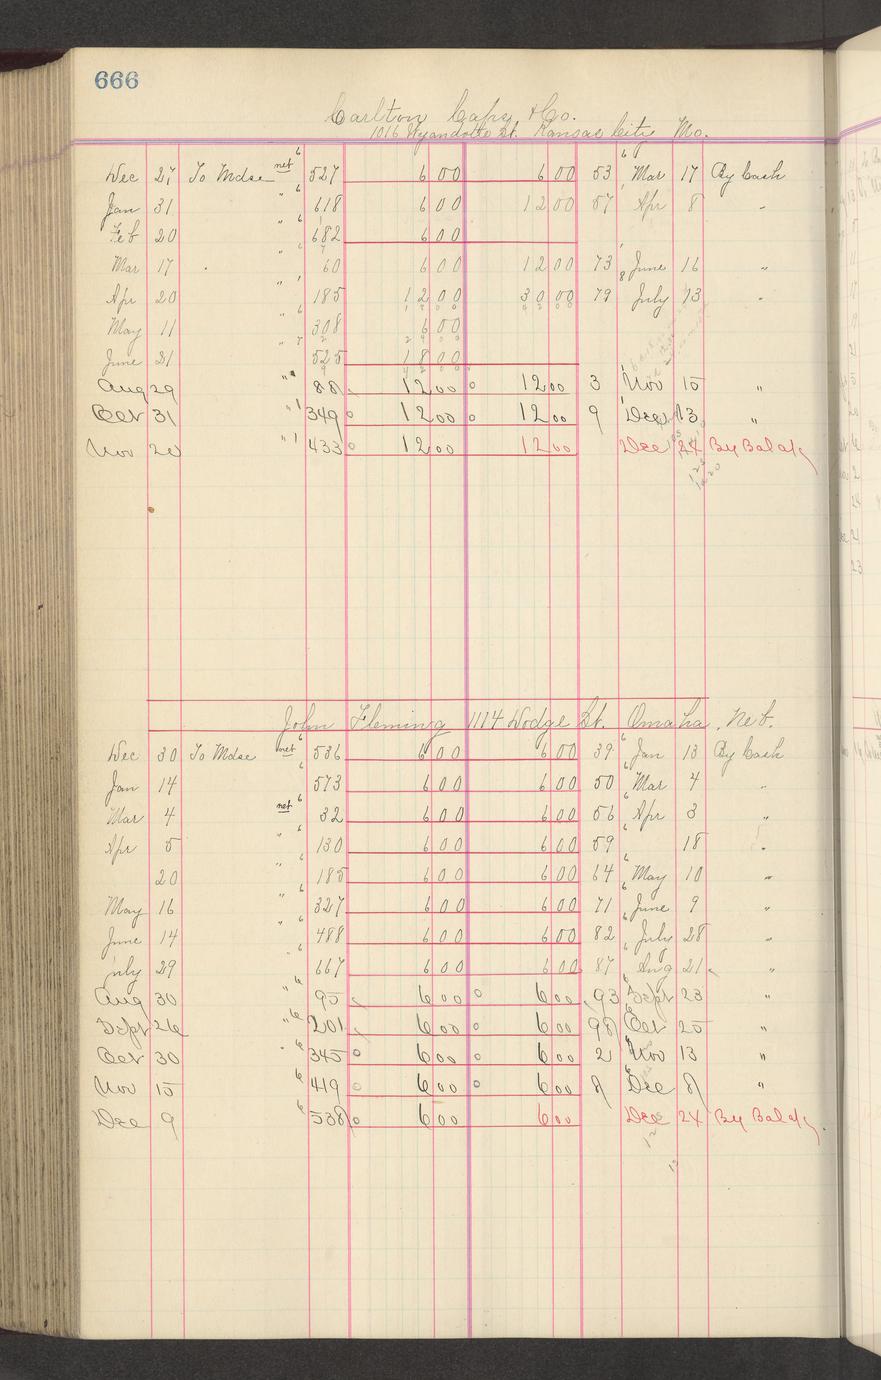 666
Carlton Caps & Co.
1016 Wyandotte St. Kansas City Mo.
Dec 27 To Mdse net 6 527 6 00 6 00 53 6 Mar 17 By Cash
Jan 31 " 6 618 6 00 12 00 57 Apr 8 "
Feb 20 " 6 682 6 00
Mar 17 " 60 6 00 12 00 73 June 16 "
Apr 20 " 185 12 00 30 00 79 8 July 13 "
May 11 " 6 308 6 00
June 21 " 525 18 00
Aug 29 " 88 12 00 12 00 3 Nov 15 "
Oct 31 " 1 349 12 00 12 00 9 Dec 13 "
Nov 20 " 1 433 12 00 12 00 Dec 24 By Bal a/c
John Fleming 1114 Dodge St. Omaha, Neb.
Dec 30 To Mdse net 6 536 6 00 6 00 39 6 Jan 13 By Cash
Jan 14 6 573 6 00 6 00 50 6 Mar 4 "
Mar 4 net 6 32 6 00 6 00 56 6 Apr 3 "
Apr 5 " 6 130 6 00 6 00 59 6 18 "
20 " 6 185 6 00 6 00 64 6 May 10 "
May 16 " 6 327 6 00 6 00 71 6 June 9 "
June 14 " 6 488 6 00 6 00 82 6 July 28 "
July 29 " 6 667 6 00 6 00 87 6 Aug 21 "
Aug 30 " 6 95 6 00 6 00 93 6 Sept 23 "
Sept 26 " 6 201 6 00 6 00 98 6 Oct 25 "
Oct 30 " 6 345 6 00 6 00 2 6 Nov 13 "
Nov 15 6 419 6 00 6 00 8 6 Dec 8 "
Dec 9 6 538 6 00 6 00 Dec 24 By Bal a/c